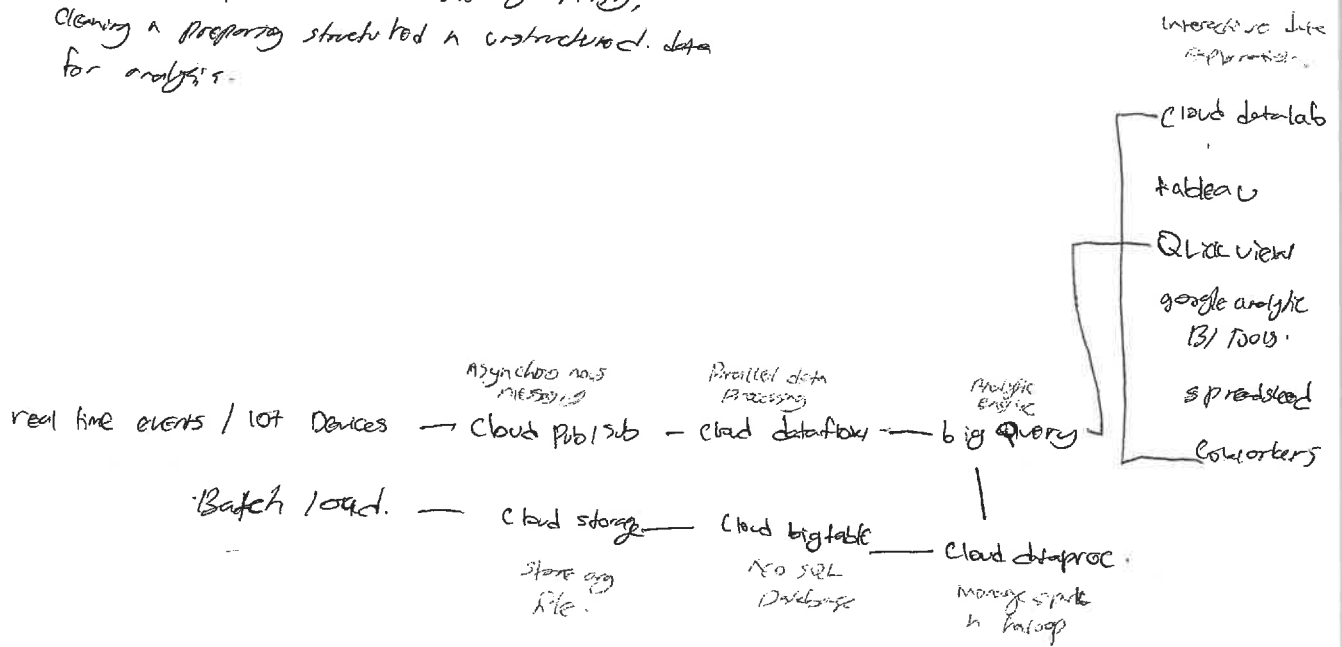 cleaning n preparing structured n unstructured. data
for analysis.
Interactive data
exploration.
cloud datalab
tableau
Qlik view
google analytic
BI Tools.
spreadsheed
Coworkers
Asynchronous
messaging
Parallel data
Processing
Analytic
engine
real time events / IOT Devices — Cloud Pub/Sub — Cloud dataflow — big Query
Batch load. — Cloud storage — Cloud bigtable — Cloud dataproc.
Store any
file.
No SQL
Database
Manage spark
n hadoop